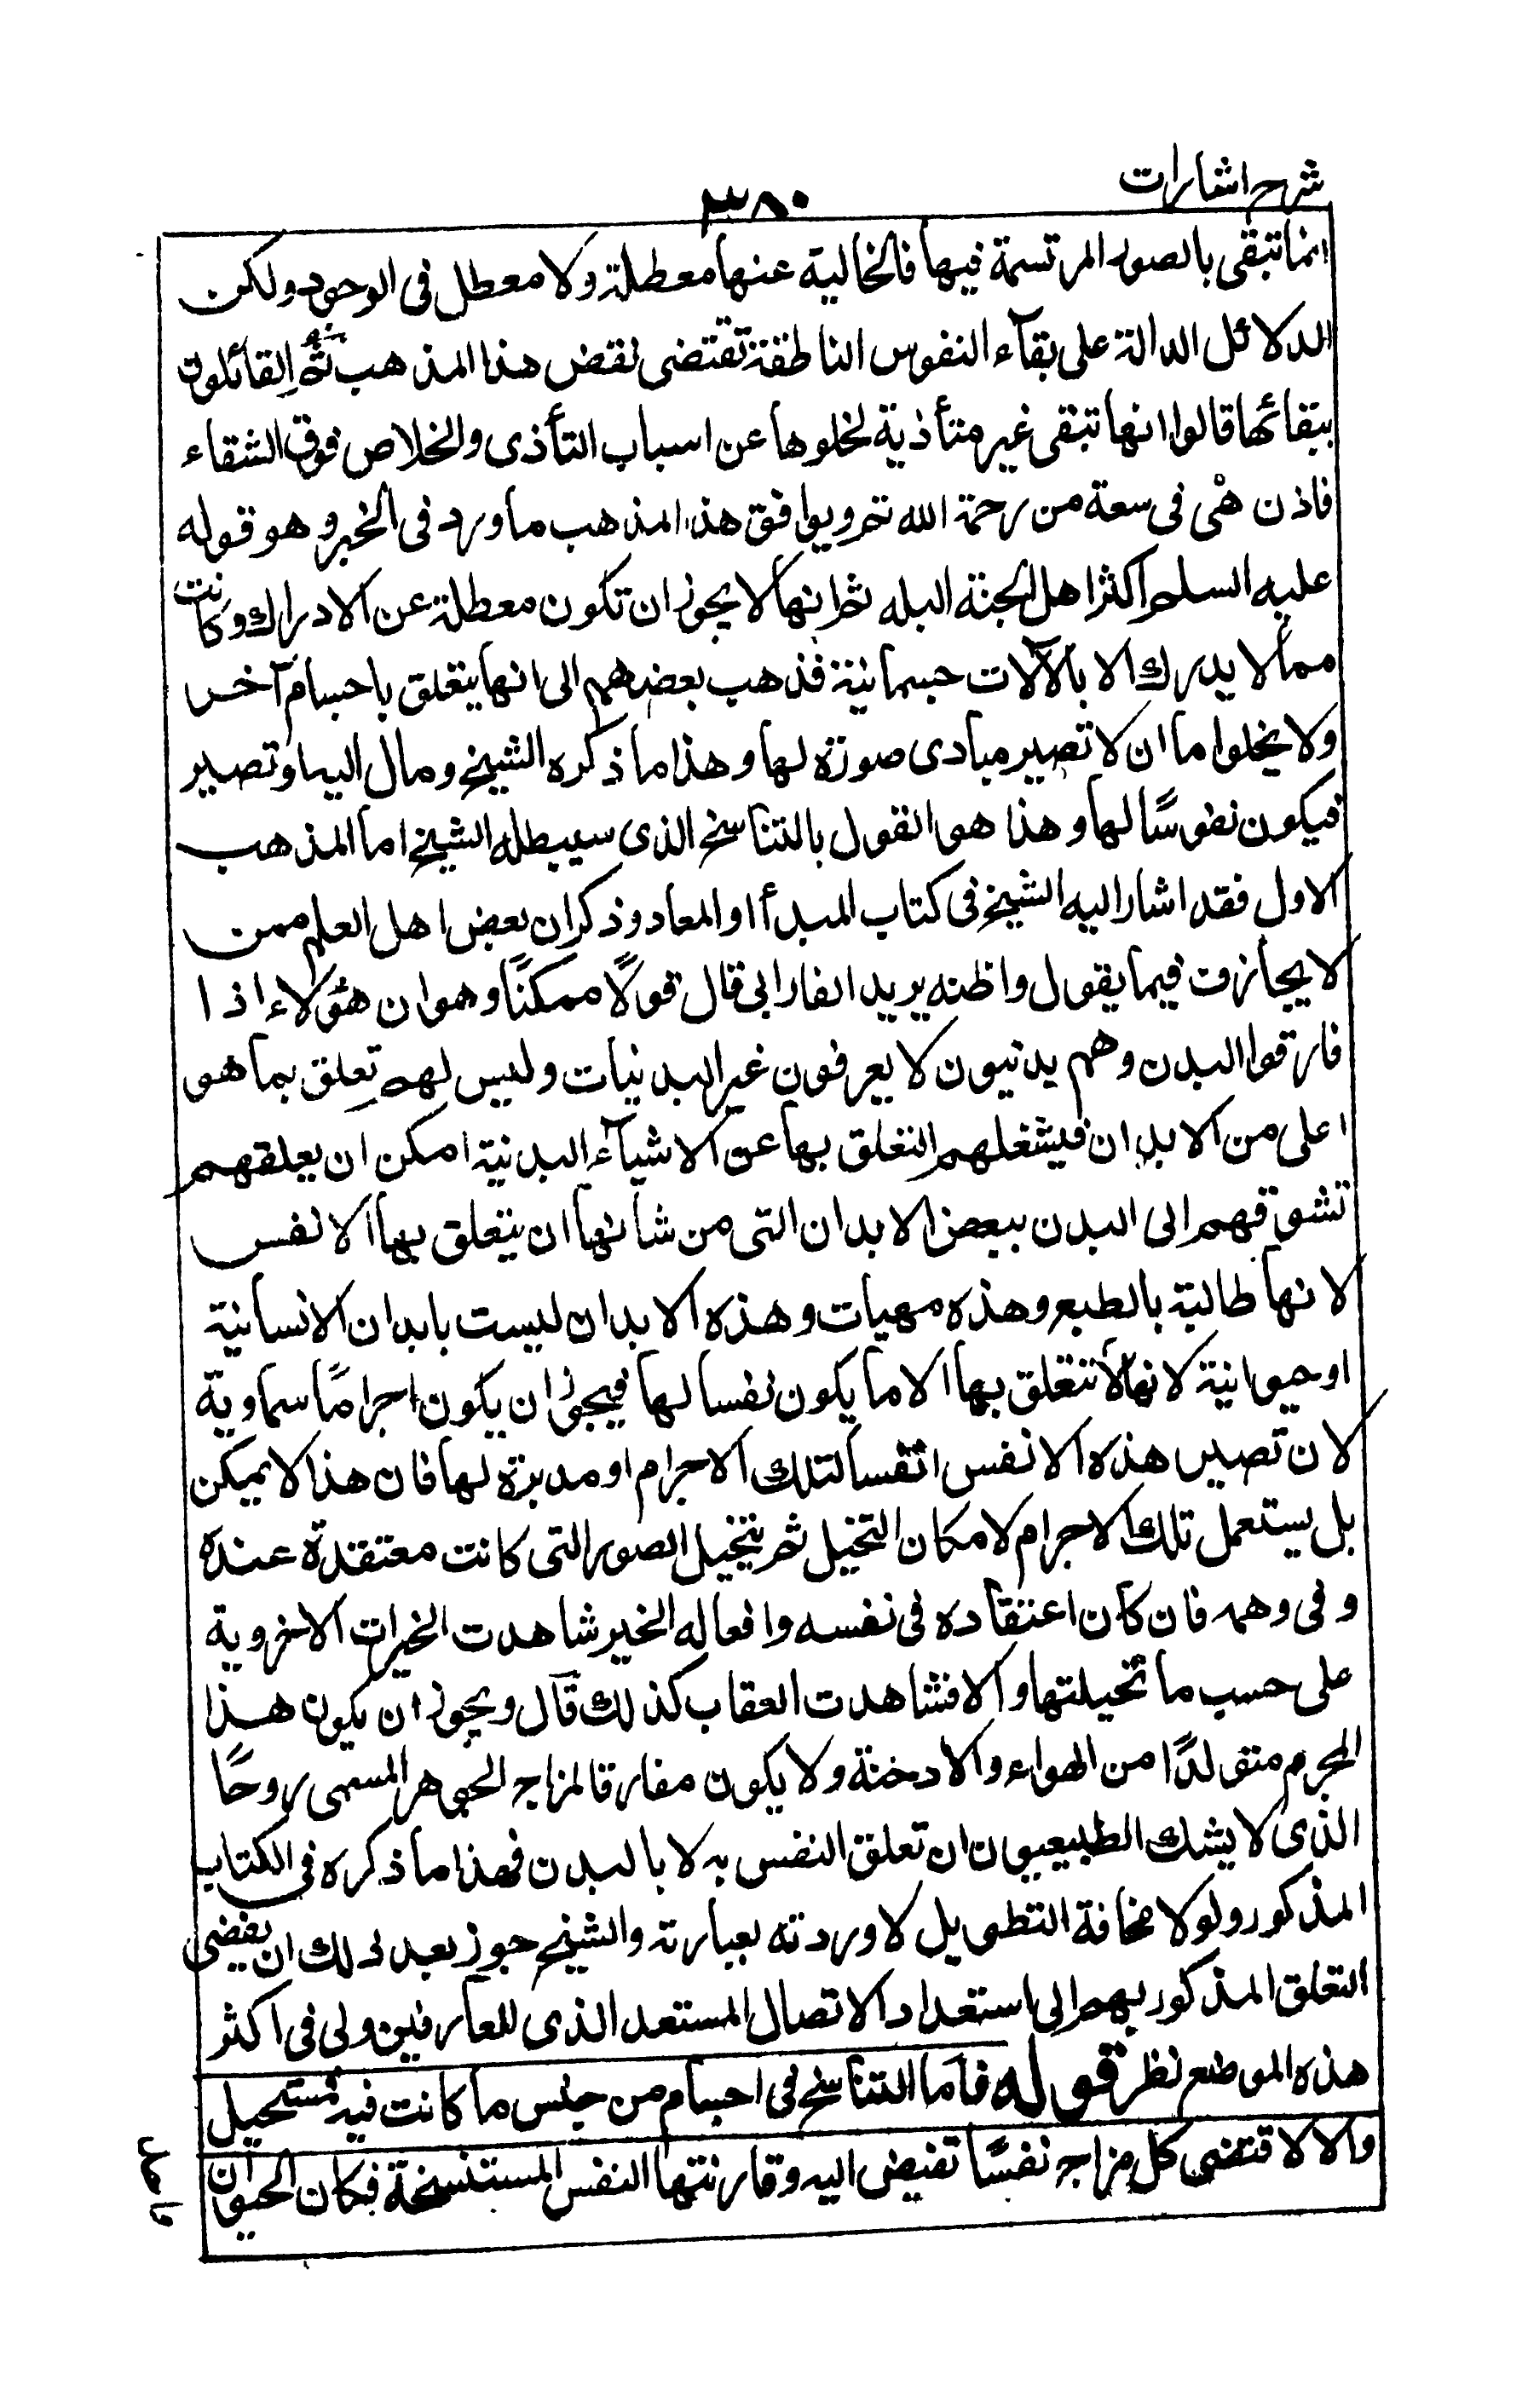 شرح اشارات
٣٨٠
انما تبقى بالصور المرتسمة فيها فالخالية عنها معطلة ولا معطل فى الوجود ولكن
الدلائل الدالة على بقآء النفوس الناطقة تقتضى نقض هذا المذهب ثم القائلون
ببقائها قالوا انها تبقى غير متأذية لخلوها عن اسباب التأذى والخلاص فوق الشقاء
فاذن هى فى سعة من رحمة الله تع ويوافق هذا المذهب ما ورد فى الخبر وهو قوله
عليه السلم اكثر اهل الجنة البله ثم انها لا يجوز ان تكون معطلة عن الادراك وكانت
مما لا يدرك الا بالآلات جسمانية فذهب بعضهم الى انها يتعلق باجسام آخر
ولا يخلوا ما ان لا تصير مبادى صورة لها وهذا ما ذكره الشيخ ومال اليه او تصير
فيكون نفوسًا لها وهذا هو القول بالتناسخ الذى سيبطله الشيخ اما المذهب
الاول فقد اشار اليه الشيخ فى كتاب المبدأ او المعاد وذكر ان بعض اهل العلم ممن
لا يجازف فيما يقول واظنه يريد الفارابى قال قولًا ممكنًا وهو ان هؤلاء اذا
فارقوا البدن وهم بدنيون لا يعرفون غير البدنيات وليس لهم تعلق بما هو
اعلى من الابدان فيشغلهم التعلق بها عن الاشيآء البدنية امكن ان يعلقهم
تشوقهم الى البدن ببعض الابدان التى من شانها ان يتعلق بها الانفس
لانها طالبة بالطبع وهذه مهيات وهذه الابدان ليست بابدان الانسانية
او حيوانية لانها لا تتعلق بها الا ما يكون نفسا لها فيجوز ان يكون اجرامًا سماوية
لان تصير هذه الانفس انفسا لتلك الاجرام او مدبرة لها فان هذا لا يمكن
بل يستعمل تلك الاجرام لامكان التخيل ثم يتخيل الصور التى كانت معتقدة عنده
و فى وهمه فان كان اعتقاده فى نفسه وافعاله الخير شاهدت الخيرات الاخروية
على حسب ما تخيلتها والا فشاهدت العقاب كذلك قال ويجوز ان يكون هذا
الجرم متولدًا من الهواء والادخنة ولا يكون مفارقا لمزاج الجوهر المسمى روحًا
الذى لا يشك الطبيعيون ان تعلق النفس به لا بالبدن فهذا ما ذكره فى الكتاب
المذكور ولولا مخافة التطويل لاوردته بعبارته والشيخ جوز بعد ذلك ان يفضى
التعلق المذكور بهم الى استعداد الاتصال المستعد الذى للعارفين ولى فى اكثر
هذه المواضع نظر قوله فاما التناسخ فى اجسام من جنس ما كانت فيه فمستحيل
والا لاقتضى كل مزاج نفسًا تفيض اليه وقارنتها النفس المستنسخة فكان لحيوان